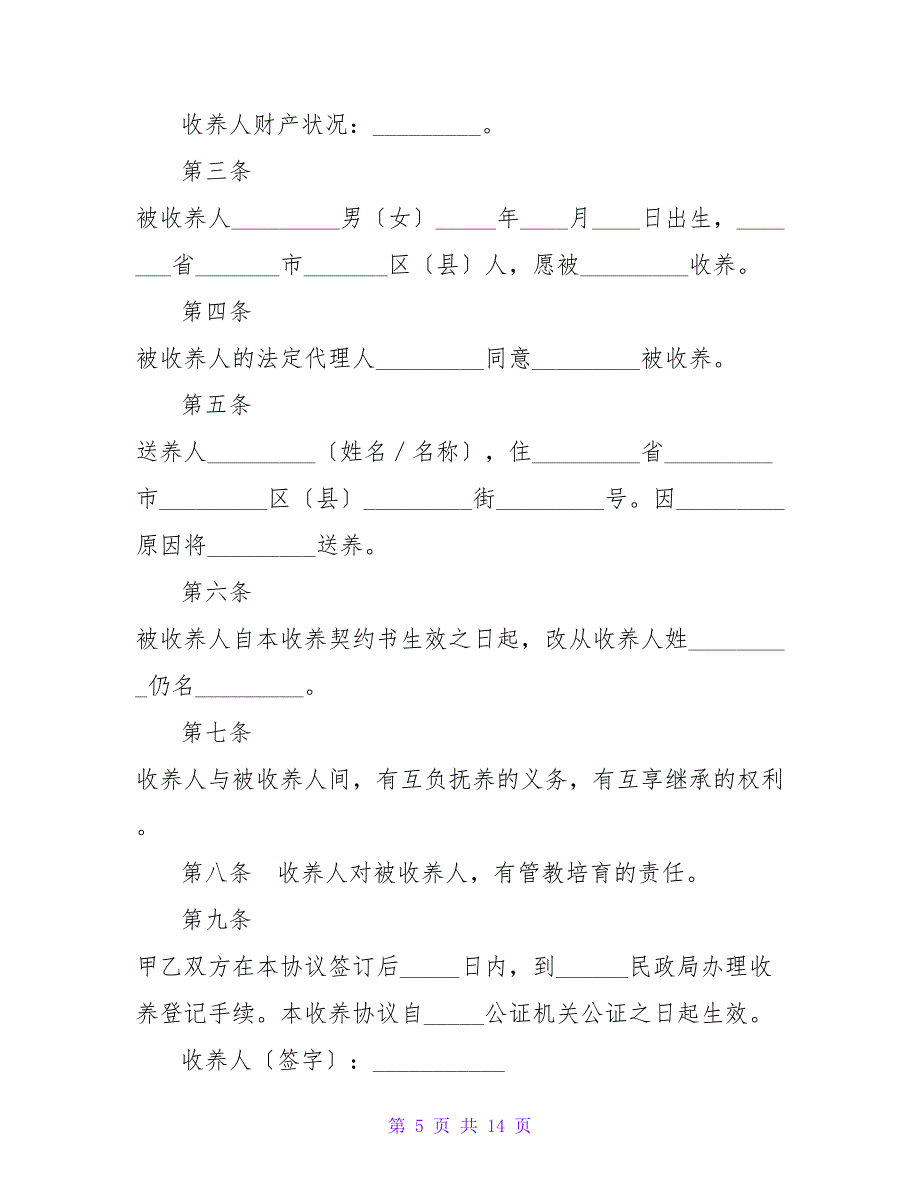 收养人财产状况：_________。
第三条
被收养人_________男〔女〕_____年____月____日出生，____
___省_______市_______区〔县〕人，愿被_________收养。
第四条
被收养人的法定代理人_________同意_________被收养。
第五条
送养人_________〔姓名／名称〕，住_________省_________
市_________区〔县〕_________街_________号。因_________
原因将_________送养。
第六条
被收养人自本收养契约书生效之日起，改从收养人姓________
_仍名_________。
第七条
收养人与被收养人间，有互负抚养的义务，有互享继承的权利
。
第八条　收养人对被收养人，有管教培育的责任。
第九条
甲乙双方在本协议签订后_____日内，到______民政局办理收
养登记手续。本收养协议自_____公证机关公证之日起生效。
收养人〔签字〕：___________
第 5 页 共 14 页